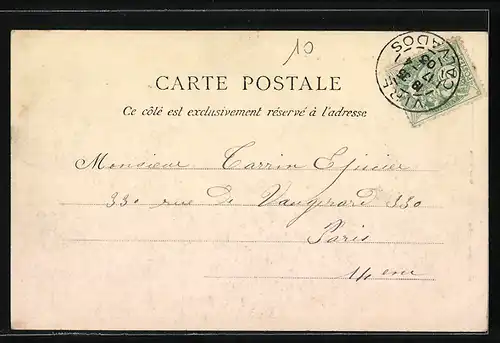 10
VIRE
CALVADOS
CARTE POSTALE
Ce côté est exclusivement réservé à l'adresse
Monsieur Carrin Epicier
330 rue de Vaugirard 330
Paris